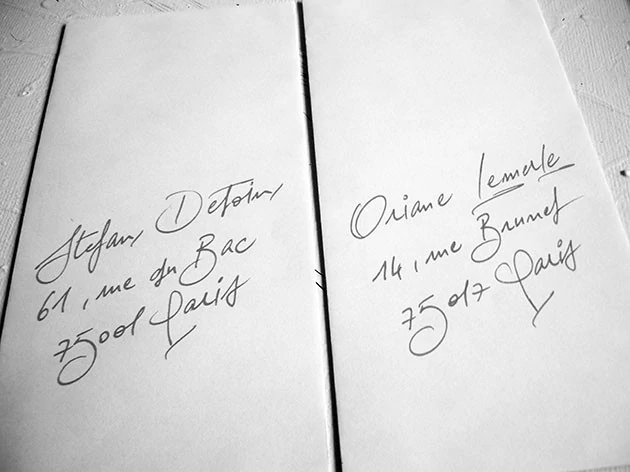 Stefan
61, rue du Bac
75001 Paris
Oriane Lemerle
14, rue Brunel
75017 Paris